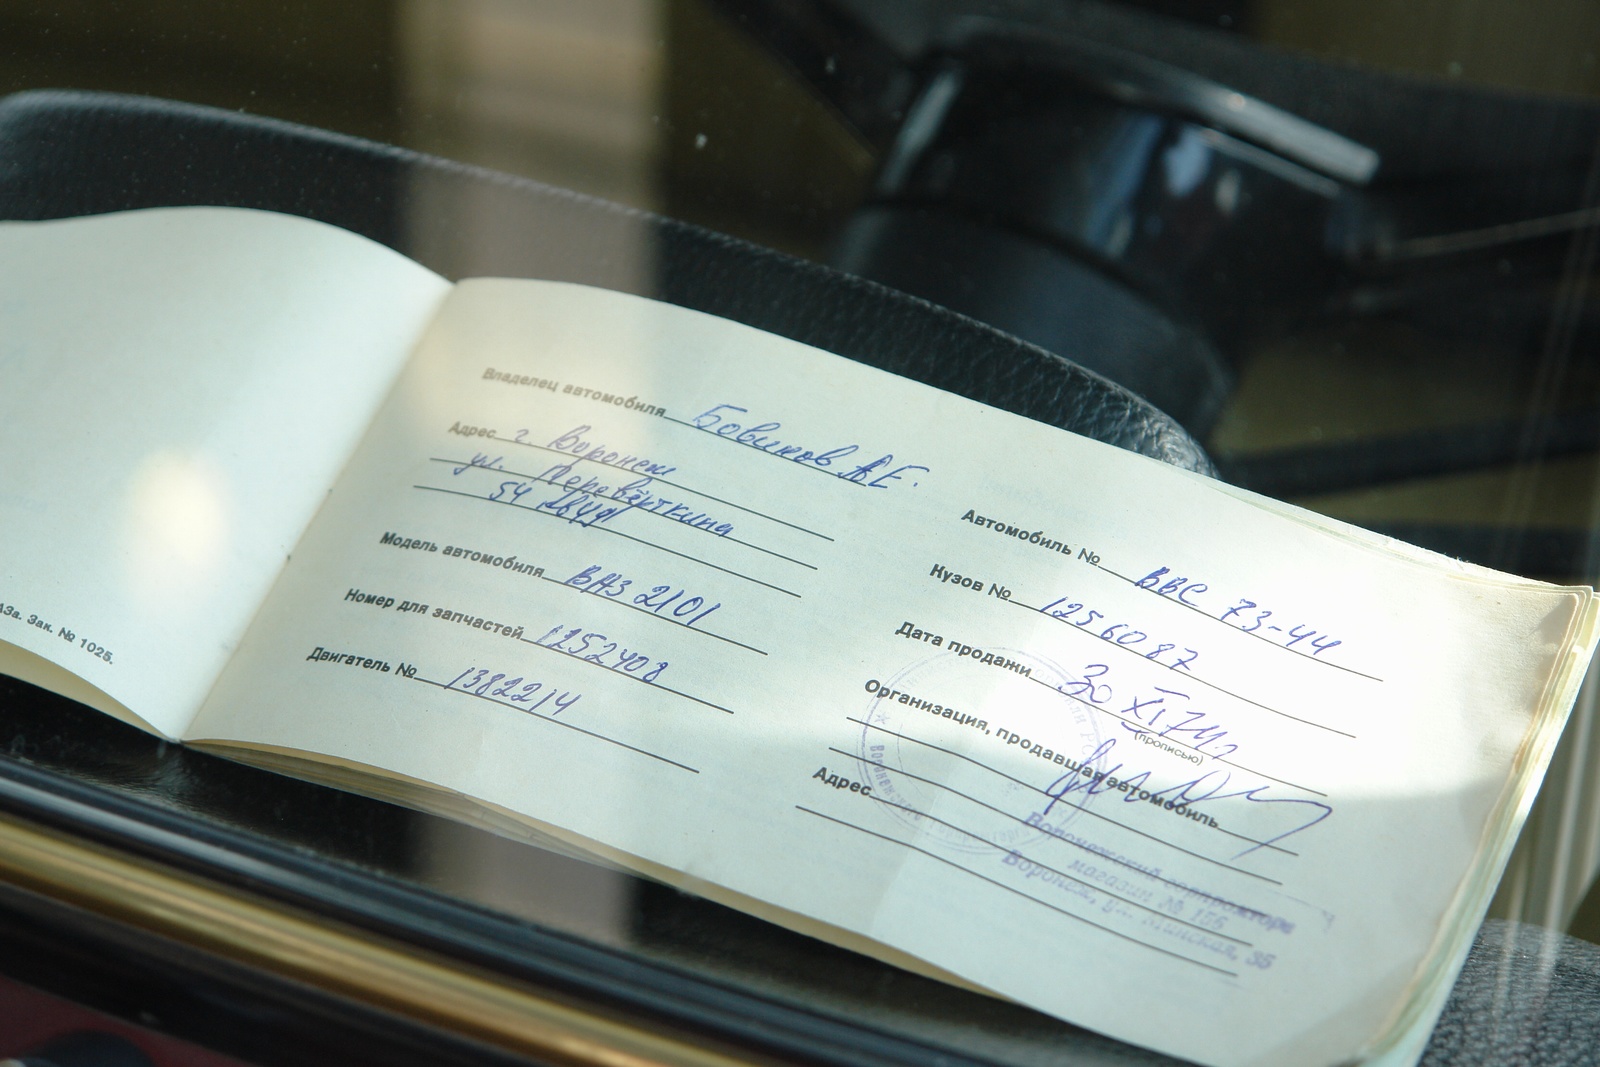 АЗа. Зак. № 1025.
Владелец автомобиля Бовиков А.Е.
Адрес г. Воронеж
ул. Перевёрткина
54
Модель автомобиля ВАЗ 2101
Номер для запчастей 1252408
Двигатель № 1382214
Автомобиль № ВВС 73-44
Кузов № 1256087
Дата продажи 30 XI 74г.
(прописью)
Организация, продавшая автомобиль
Адрес
Воронежский
магазин № 156
Воронеж, ул. Минская, 35